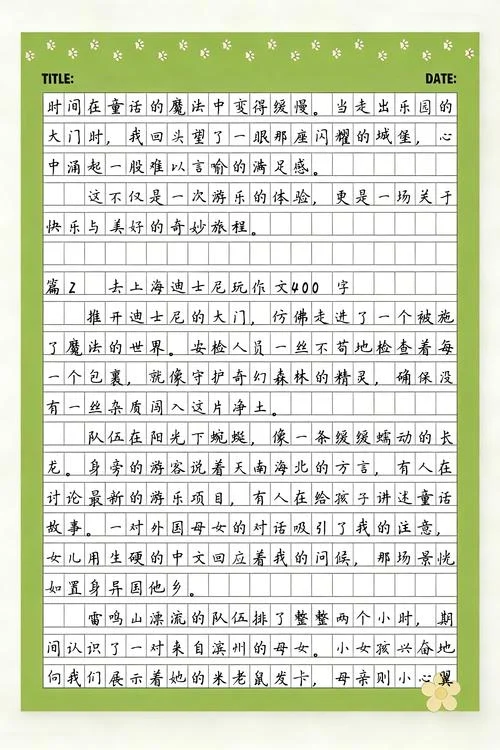 TITLE: DATE:
时间在童话的魔法中变得缓慢。当走出乐园的
大门时，我回头望了一眼那座闪耀的城堡，心
中涌起一股难以言喻的满足感。
这不仅是一次游乐的体验，更是一场关于
快乐与美好的奇妙旅程。
篇2 去上海迪士尼玩作文400 字
推开迪士尼的大门，仿佛走进了一个被施
了魔法的世界。安检人员一丝不苟地检查着每
一个包裹，就像守护奇幻森林的精灵，确保没
有一丝杂质闯入这片净土。
队伍在阳光下蜿蜒，像一条缓缓蠕动的长
龙。身旁的游客说着天南海北的方言，有人在
讨论最新的游乐项目，有人在给孩子讲述童话
故事。一对外国母女的对话吸引了我的注意，
女儿用生硬的中文回应着我的问候，那场景恍
如置身异国他乡。
雷鸣山漂流的队伍排了整整两个小时，期
间认识了一对来自滨州的母女。小女孩兴奋地
向我们展示着她的米老鼠发卡，母亲则小心翼